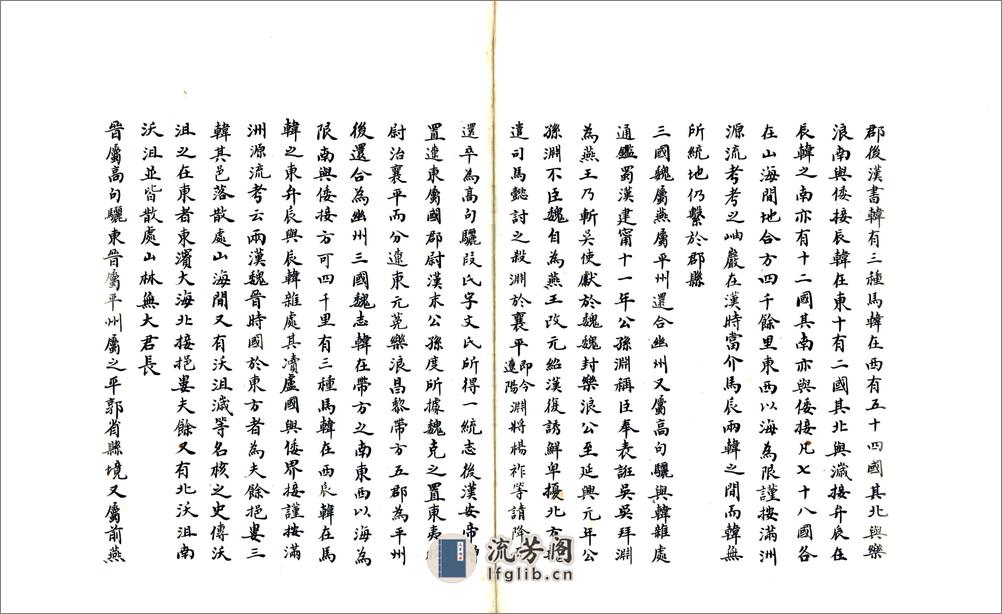 郡後漢書韓有三種馬韓在西有五十四國其北與樂
浪南與倭接辰韓在東十有二國其北與濊接弁辰在
辰韓之南亦有十二國其南亦與倭接凡七十八國各
在山海間地合方四千餘里東西以海為限謹按滿洲
源流考考之岫巖在漢時當介馬辰兩韓之間而韓無
所統地仍繫於郡縣
三國魏屬燕屬平州還合幽州又屬高句驪與韓雜處
通鑑蜀漢建甯十一年公孫淵稱臣奉表誑吳吳拜淵
為燕王乃斬吳使獻於魏魏封樂浪公至延興元年公
孫淵不臣魏自為燕王改元紹漢復誘鮮卑擾北方
遣司馬懿討之殺淵於襄平即今遼陽淵將楊祚等請降
還卒為高句驪段氏宇文氏所得一統志後漢安帝
置遼東屬國郡尉漢末公孫度所據魏克之置東夷
尉治襄平而分遼東元菟樂浪昌黎帶方五郡為平州
後還合為幽州三國魏志韓在帶方之南東西以海為
限南與倭接方可四千里有三種馬韓在西辰韓在馬
韓之東弁辰與辰韓雜處其瀆盧國與倭界接謹按滿
洲源流考云兩漢魏晉時國於東方者為夫餘挹婁三
韓其邑落散處山海間又有沃沮濊等名核之史傳沃
沮之在東者東濱大海北接挹婁夫餘又有北沃沮南
沃沮並皆散處山林無大君長
晉屬高句驪東晉屬平州屬之平郭省縣境又屬前燕
流芳阁
lfglib.cn